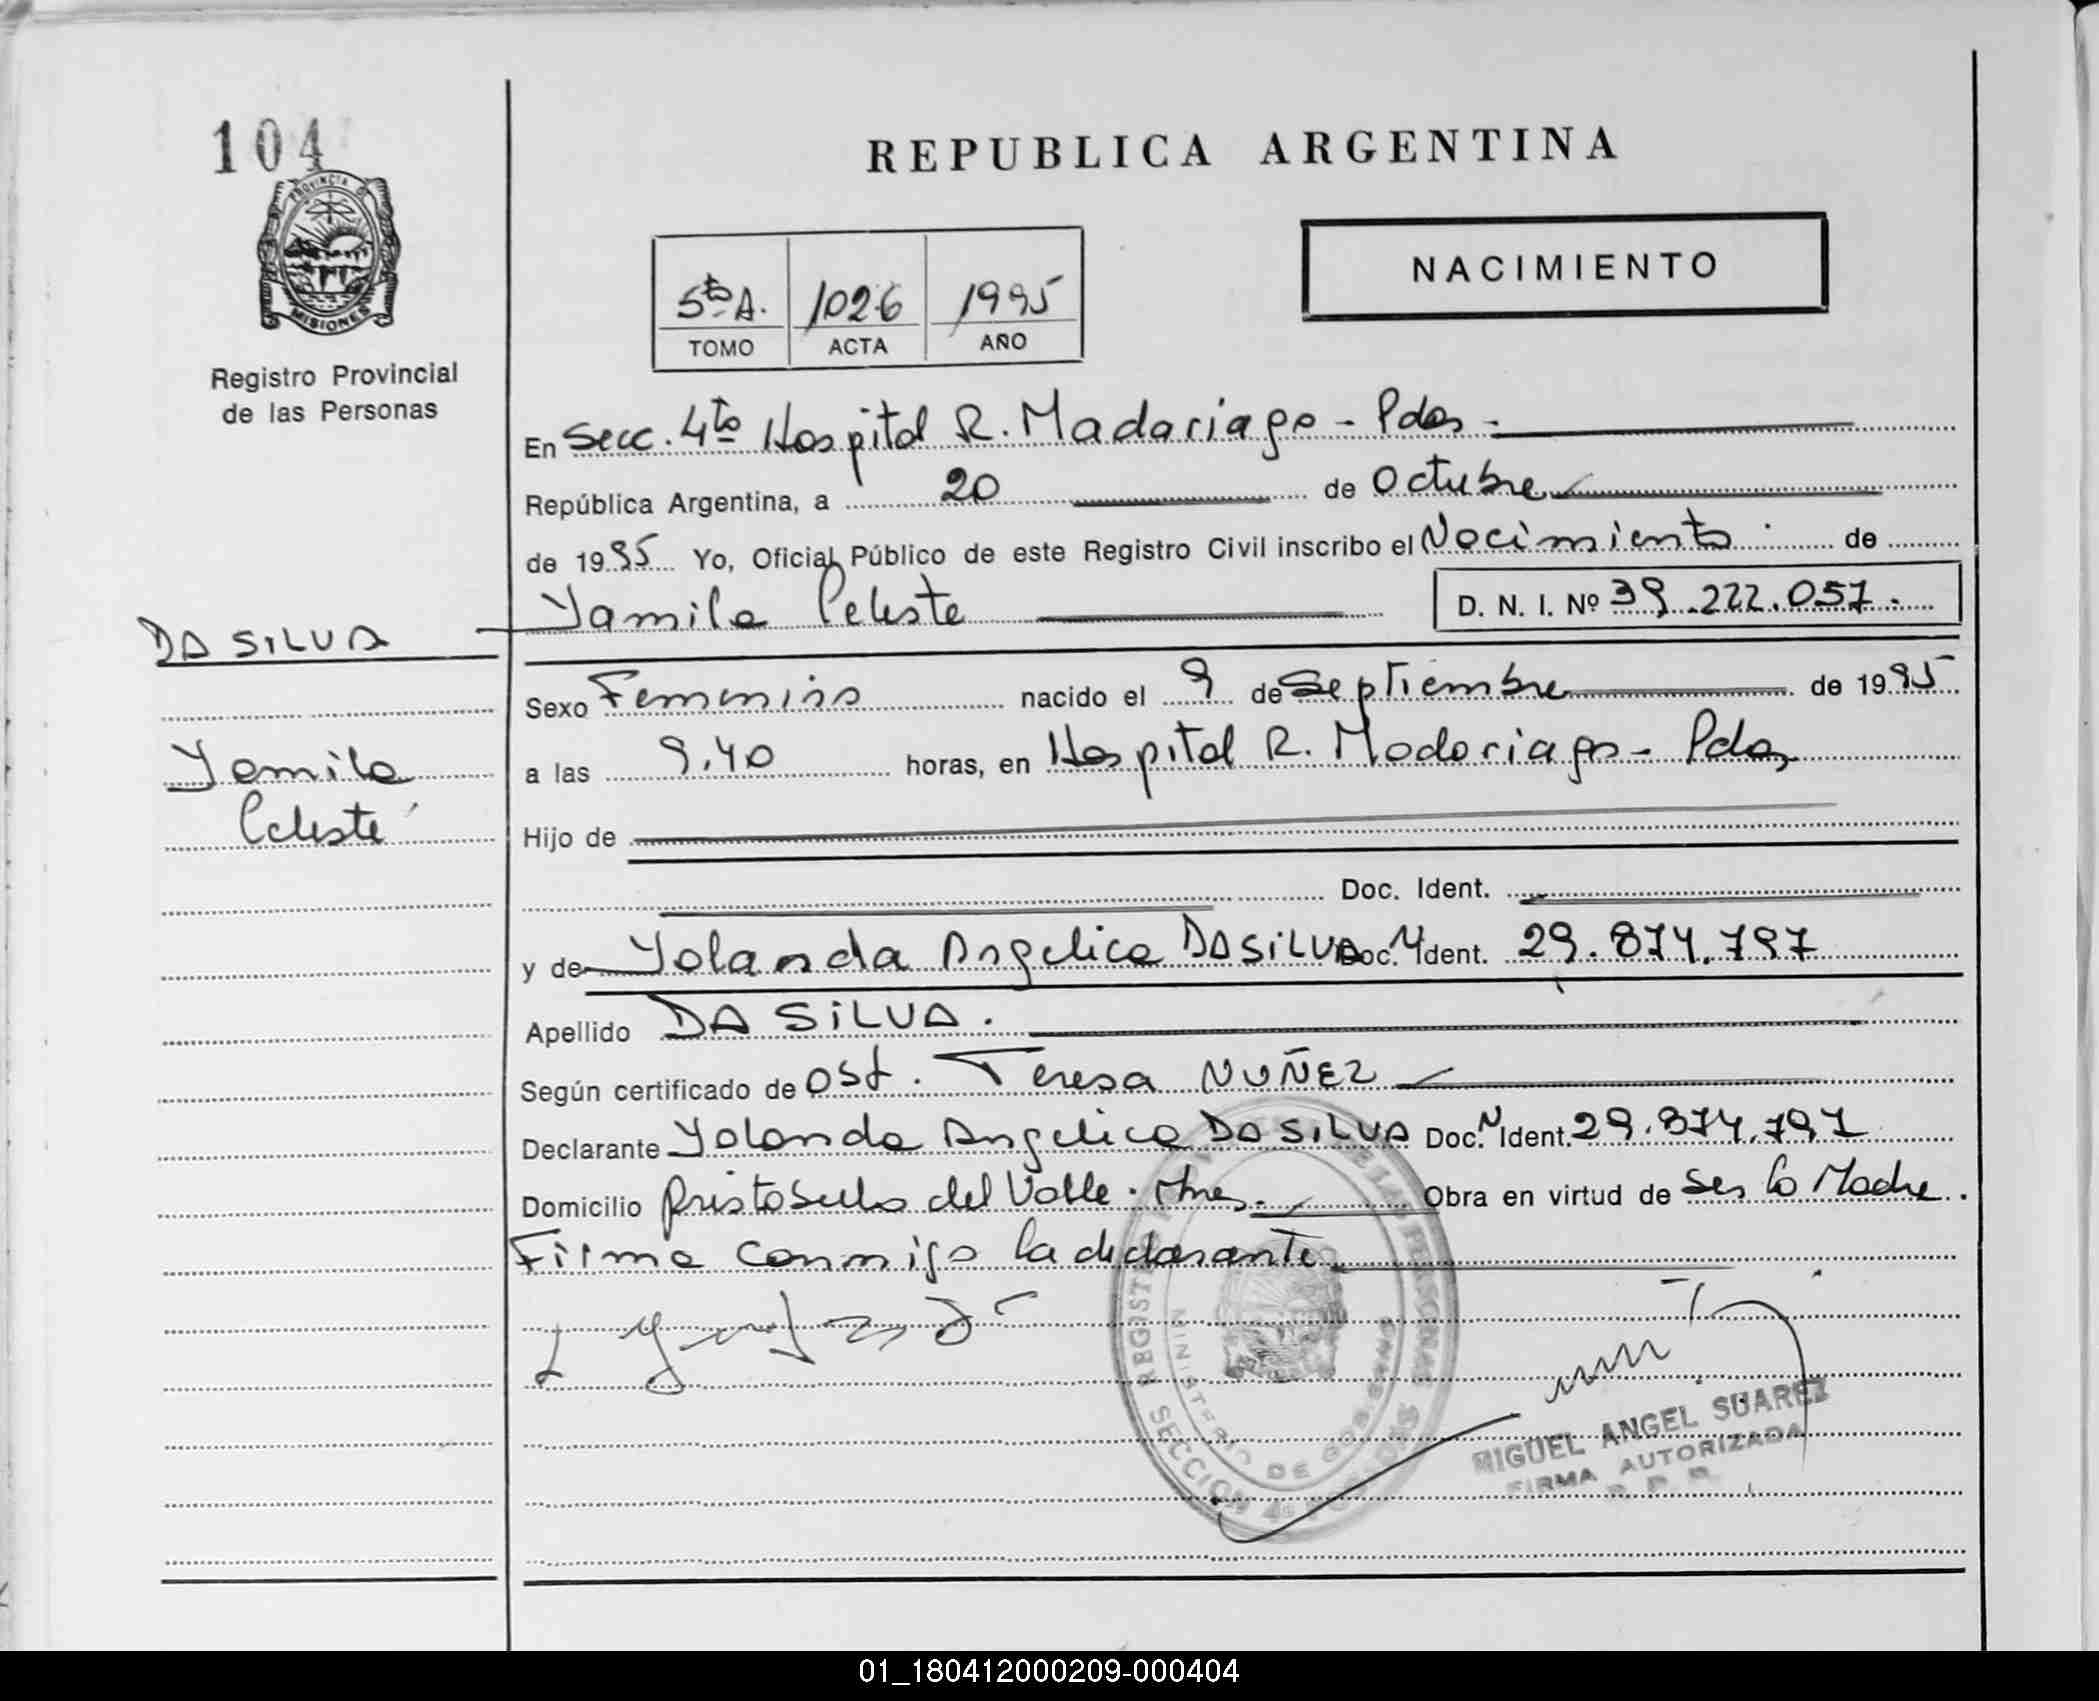 104
PROVINCIA D
MISIONES
Registro Provincial
de las Personas
REPUBLICA ARGENTINA
NACIMIENTO
5to A. 1026 1995
TOMO ACTA AÑO
En Secc. 4to Hospital R. Madariaga - Pdas -
República Argentina, a 20 de Octubre
de 1995 Yo, Oficial Público de este Registro Civil inscribo el Nacimiento de
Yamila Celeste D. N. I. Nº 39.222.057.
DA SILVA
Sexo Femenino nacido el 9 de Septiembre de 1995
Yamila
a las 9.40 horas, en Hospital R. Madariaga - Pdas
Celeste
Hijo de
Doc. Ident.
y de Yolanda Angelica DA SILVA Doc. N Ident. 29.874.797
Apellido DA SILVA.
Según certificado de Ost. Teresa NUÑEZ
Declarante Yolanda Angelica DA SILVA Doc. N Ident. 29.874.797
Domicilio del Valle. Mnes. Obra en virtud de ser la Madre.
Firma conmigo la declarante
REGISTRO PROVINCIAL DE LAS PERSONAS
MINISTERIO DE GOBIERNO
SECCION 4º
MIGUEL ANGEL SUAREZ
FIRMA AUTORIZADA
R. P. P.
01_180412000209-000404